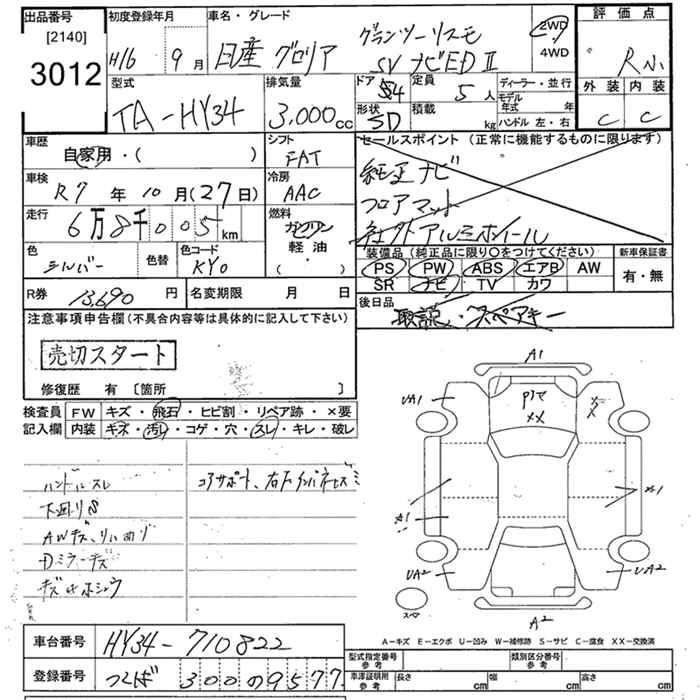 出品番号 初度登録年月 車名・グレード 評価点
[2140] グランツーリスモ 2WD
3012 H16 9月 日産 グロリア SV ナビED II 4WD R小
型式 排気量 ドア 定員 ディーラー・並行 外装 内装
TA-HY34 3,000cc 4 5人 モデル年式 年 C C
形状 積載
SD kg ハンドル 左・右
車歴 シフト セールスポイント (正常に機能するものに限ります)
自家用・( ) FAT 純正ナビ
車検 冷房 フロアマット
R7年10月(27日) AAC 社外アルミホイール
走行 燃料
6万8千005km ガソリン
軽油
( )
色 色替 色コード 装備品 (純正品に限り○をつけてください) 新車保証書
シルバー KY0 PS PW ABS エアB AW 有・無
SR ナビ TV カワ
R券 13,690円 名変期限 月 日 後日品
取説・スペアキー
注意事項申告欄(不具合内容等は具体的に記入して下さい)
売切スタート
修復歴 有 〔箇所 〕
検査員 FW キズ・飛石・ヒビ割・リペア跡・×要
記入欄 内装 キズ・汚レ・コゲ・穴・スレ・キレ・破レ
ハンドルスレ コアサポート、右
下廻りS
AWキズ
Dミラーキズ
A1
UA1
XX
UA2 UA2
スペア A2
A-キズ E-エクボ U-凹み W-補修跡 S-サビ C-腐食 XX-交換済
車台番号 HY34-710822
型式指定番号 参考 類別区分番号 参考
登録番号 つくば 300の9577
車庫証明用 参考 長さ cm 幅 cm 高さ cm